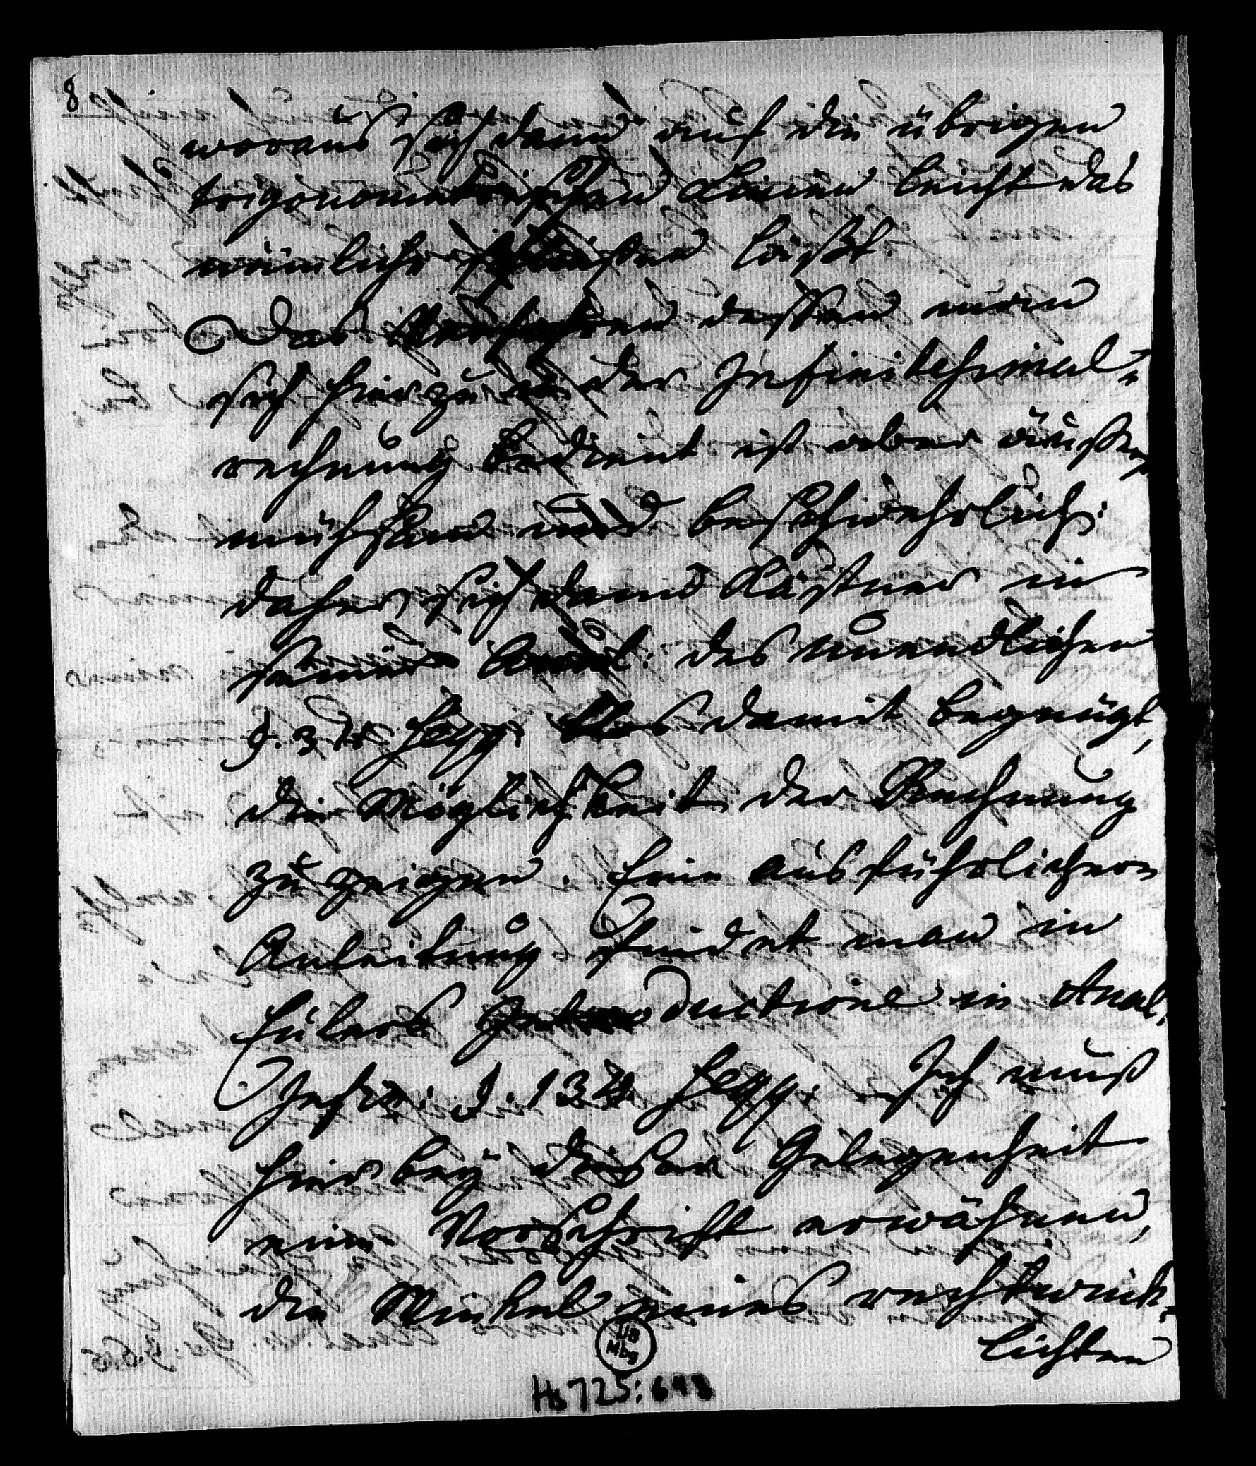 8
woraus sich dann auf die übrigen
trigonometrischen Linien leicht das
nämliche schließen läßt.
Das Verfahren dessen man
sich hierzu in der Infinitesimal-
rechnung bedient ist aber äußerst
mühsam und beschwehrlich:
daher sich dann Kästner in
seiner Anal: des Unendlichen
§. 34 seqq. blos damit begnügt,
die Möglichkeit der Rechnung
zu zeigen. Eine ausführlichere
Anleitung findet man in
Eulers Introductione in Anal.
Infin: §. 134 seqq. Ich muß
hier bey dieser Gelegenheit
einer Vorschrift erwähnen,
die Winkel eines rechtwink-
lichten
UB
Mbg
Hs 725: 698